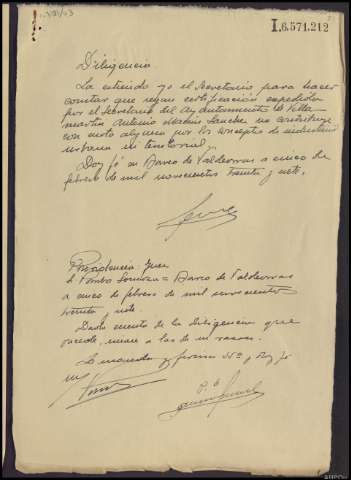 I.6.571.212
Diligencia
La extiendo yo el Secretario para hacer
constar que según certificación expedida
por el Secretario del Ayuntamiento de Villa-
martín Antonio Macías Sanchez no contribuye
con cuota alguna por los conceptos de industrial
urbana ni territorial.
Doy fé en Barco de Valdeorras a cinco de
febrero de mil novecientos treinta y siete.
Providencia Juez
Barco de Valdeorras
a cinco de febrero de mil novecientos
treinta y siete.
Dada cuenta de la diligencia que
precede, unase a las de su razón.
Lo manda y firma Sª, Doy fé